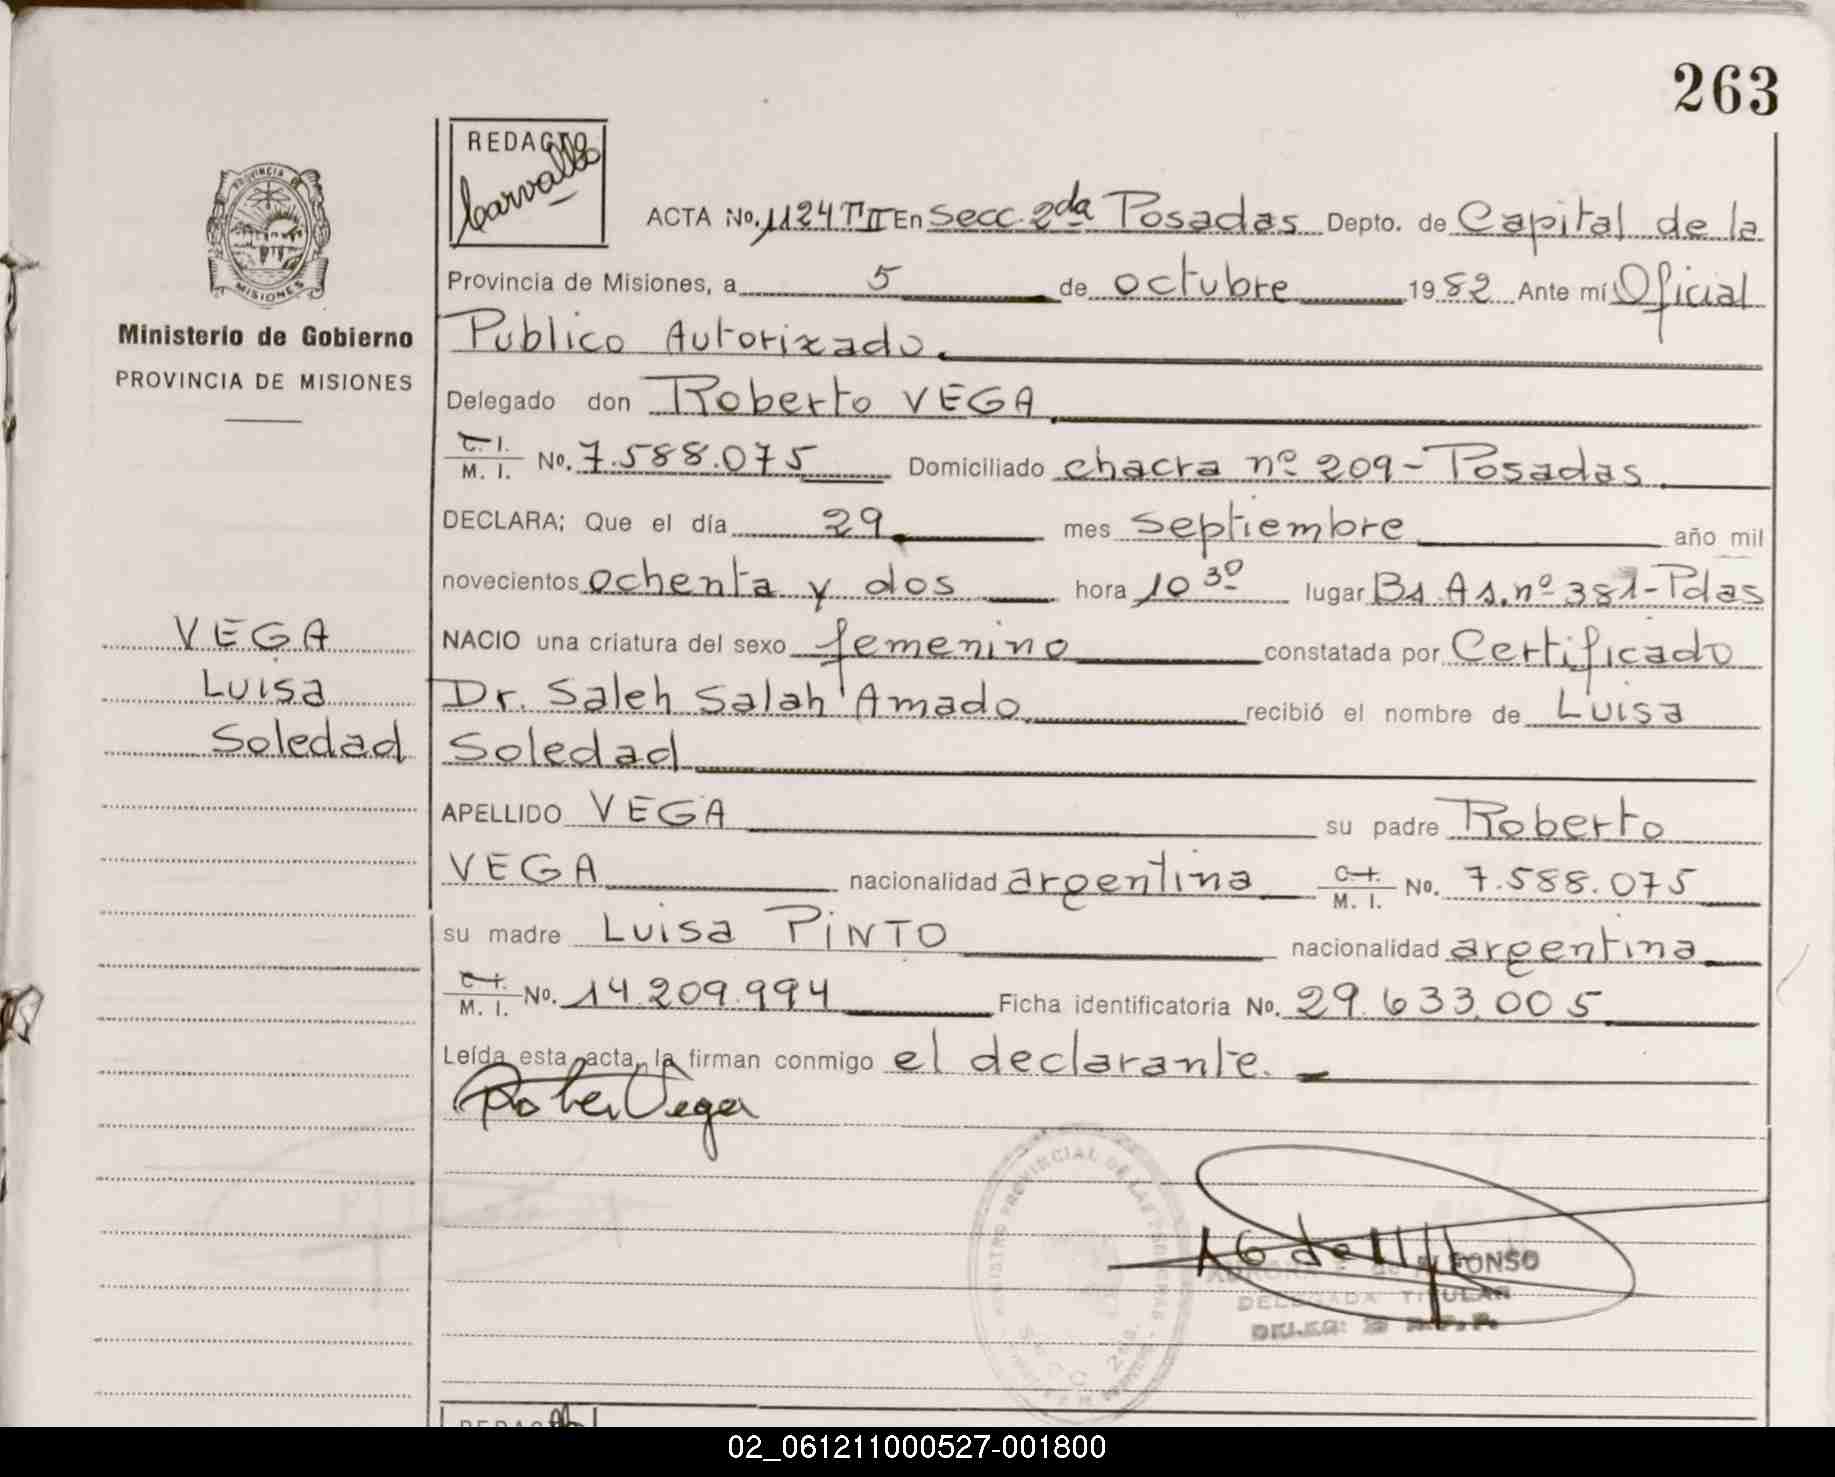 263
REDACTO
Carvallo
PROVINCIA DE
MISIONES
Ministerio de Gobierno
PROVINCIA DE MISIONES
VEGA
Luisa
Soledad
ACTA No. 1124 TºII En Secc. 2da Posadas Depto. de Capital de la
Provincia de Misiones, a 5 de octubre 1982 Ante mí Oficial
Publico Autorizado.
Delegado don Roberto VEGA
C. I. M. I. No. 7.588.075 Domiciliado chacra nº 209 - Posadas
DECLARA: Que el día 29 mes septiembre año mil
novecientos ochenta y dos hora 10 30 lugar Bs. As. nº 381 - Pdas
NACIO una criatura del sexo femenino constatada por Certificado
Dr. Saleh Salah Amado recibió el nombre de Luisa
Soledad
APELLIDO VEGA su padre Roberto
VEGA nacionalidad argentina C. I. M. I. No. 7.588.075
su madre Luisa PINTO nacionalidad argentina
C. I. M. I. No. 14.209.994 Ficha identificatoria No. 29.633.005
Leída esta acta, la firman conmigo el declarante.
Rober Vega
REGISTRO PROVINCIAL DE LAS PERSONAS
SECC. 2da.
ALFONSO
DELEGADA TITULAR
DELEG. 2a R.P.P.
REDACTO
02_061211000527-001800